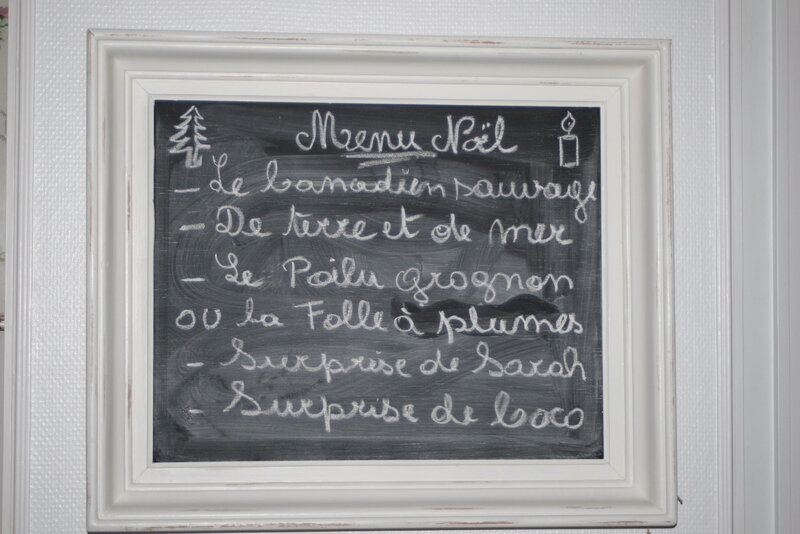 Menu Noël
- Le Canadien sauvage
- De terre et de mer
- Le Poilu grognon
ou la Folle à plumes
- Surprise de Sarah
- Surprise de Coco